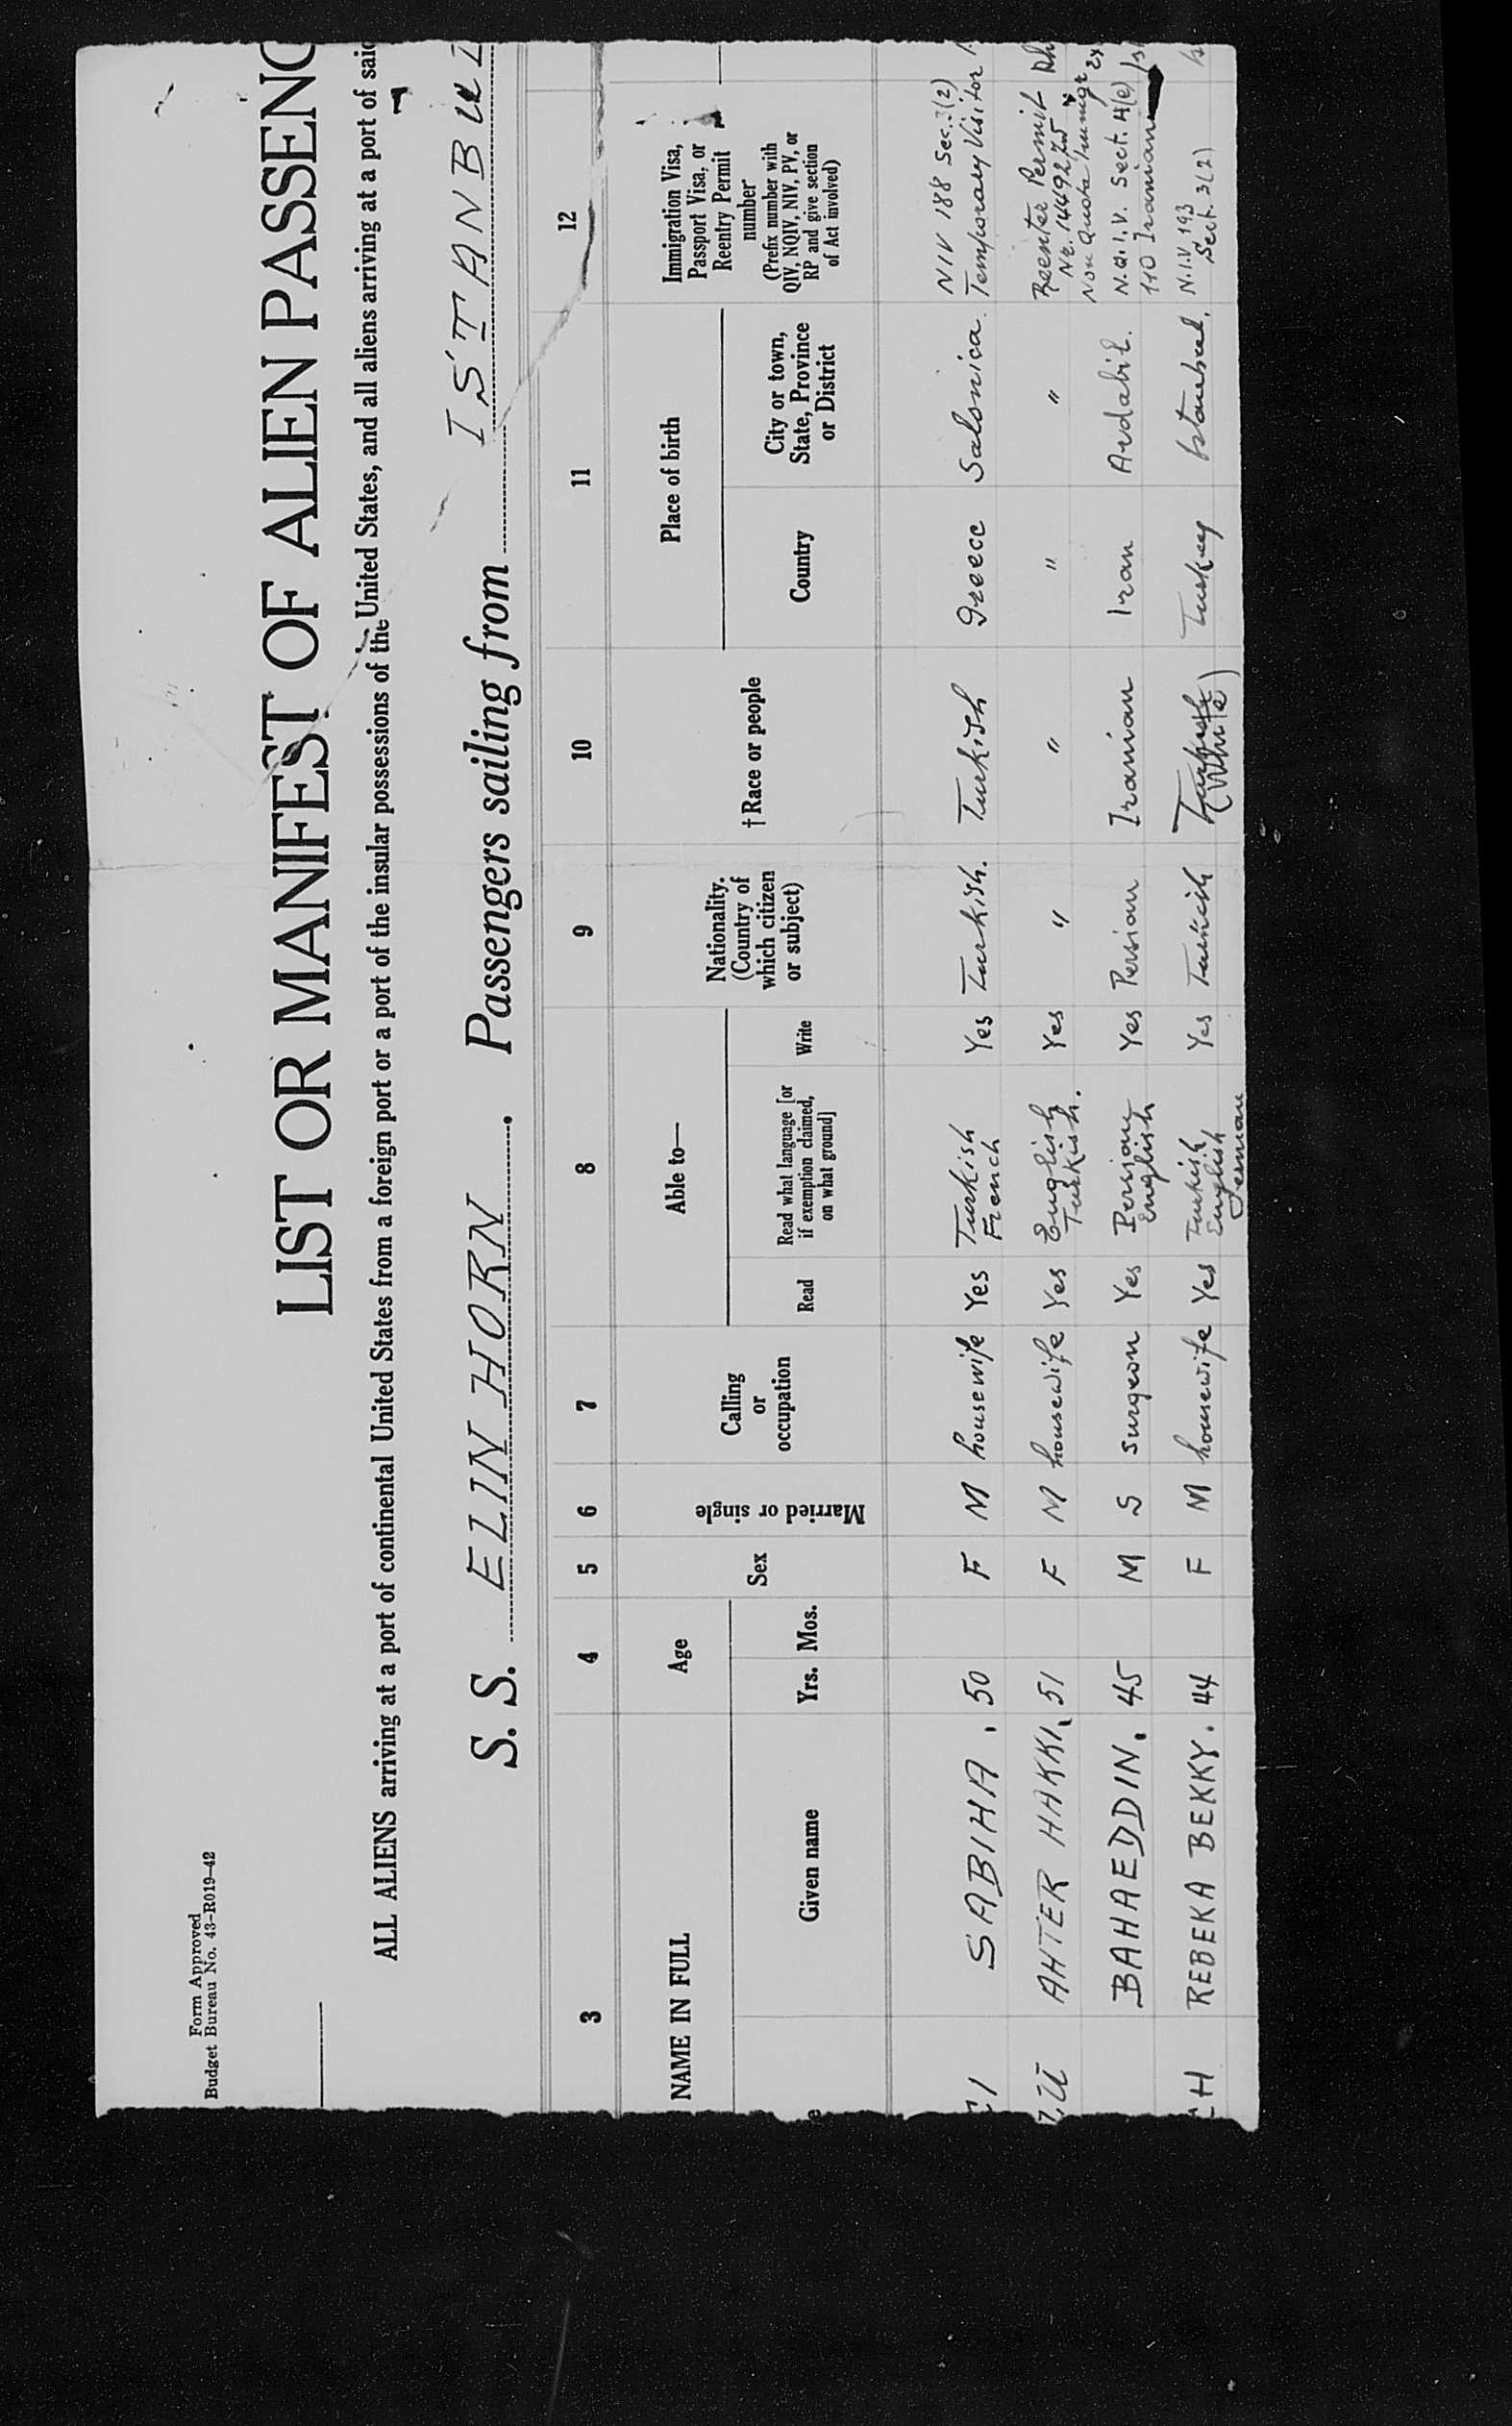 Form Approved
Budget Bureau No. 43-R019-42
LIST OR MANIFEST OF ALIEN PASSENG
ALL ALIENS arriving at a port of continental United States from a foreign port or a part of the insular possessions of the United States, and all aliens arriving at a port of said
S. S. ELIN HORN . Passengers sailing from ISTANBUL
3 4 5 6 7 8 9 10 11 12
NAME IN FULL
Given name
Age
Yrs. Mos.
Sex
Married or single
Calling
or
occupation
Able to—
Read
Read what language [or
if exemption claimed,
on what ground]
Write
Nationality.
(Country of
which citizen
or subject)
†Race or people
Place of birth
Country
City or town,
State, Province
or District
Immigration Visa,
Passport Visa, or
Reentry Permit
number
(Prefix number with
QIV, NQIV, NIV, PV, or
RP and give section
of Act involved)
SABIHA . 50 F M housewife Yes Turkish French Yes Turkish. Turkish Greece Salonica. NIV 188 Sec. 3(2)
Temporary Visitor
AHTER HAKKI. 51 F M housewife Yes English Turkish. Yes " " " " Reenter Permit
Nr. 1449275
Non Quota Immigt
BAHAEDDIN. 45 M S surgeon Yes Persian English Yes Persian Iranian Iran Ardabil. N.Q.I.V. Sect. 4(e)
110 Iranian
H REBEKA BEKKY. 44 F M housewife Yes Turkish English German Yes Turkish Turkish (White) Turkey Istanbul. N.I.V 193
Sect. 3(2)